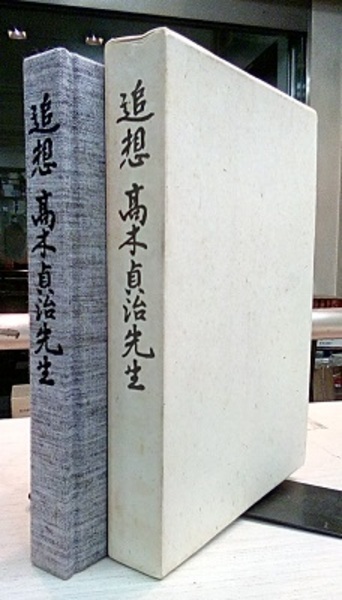 追想 高木貞治先生
追想 高木貞治先生